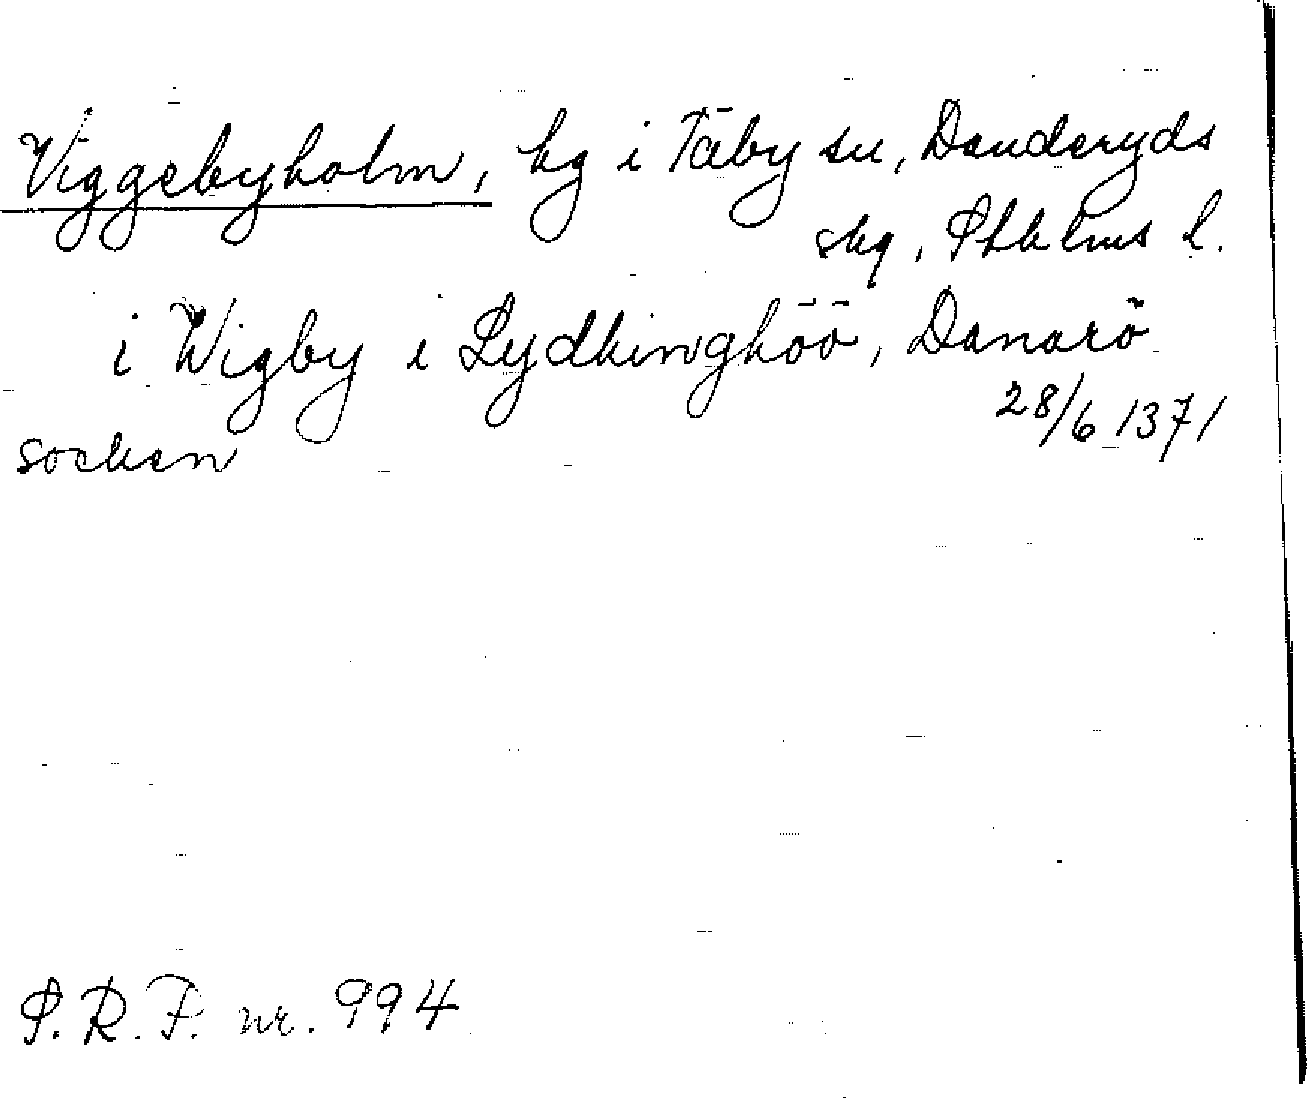 Viggebyholm, hg i Täby sn, Danderyds
skg, Sthlms l.
i Wigby i Lydhinghöö, Danarö
28/6 1371
socken
S.R.P. nr. 994